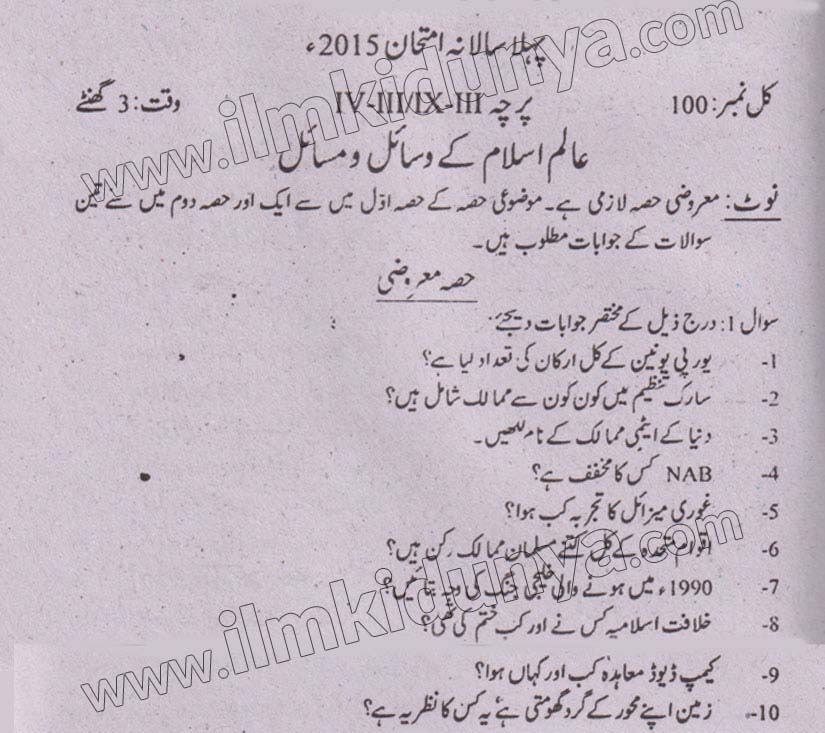 پہلا سالانہ امتحان 2015ء
کل نمبر: 100 پرچہ IV-III/IX-III وقت: 3 گھنٹے
عالم اسلام کے وسائل و مسائل
نوٹ: معروضی حصہ لازمی ہے۔ موضوعی حصہ کے حصہ اوّل میں سے ایک اور حصہ دوم میں سے تین
سوالات کے جوابات مطلوب ہیں۔
حصہ معروضی
سوال 1: درج ذیل کے مختصر جوابات دیجئے
1- یورپی یونین کے کل ارکان کی تعداد کیا ہے؟
2- سارک تنظیم میں کون کون سے ممالک شامل ہیں؟
3- دنیا کے ایٹمی ممالک کے نام لکھیں۔
4- NAB کس کا مخفف ہے؟
5- غوری میزائل کا تجربہ کب ہوا؟
6- اقوام متحدہ کے کل کتنے مسلمان ممالک رکن ہیں؟
7- 1990ء میں ہونے والی خلیجی جنگ کی وجہ بتائیں؟
8- خلافت اسلامیہ کس نے اور کب ختم کی تھی؟
9- کیمپ ڈیوڈ معاہدہ کب اور کہاں ہوا؟
10- زمین اپنے محور کے گرد گھومتی ہے، یہ کس کا نظریہ ہے؟
www.ilmkidunya.com
www.ilmkidunya.com